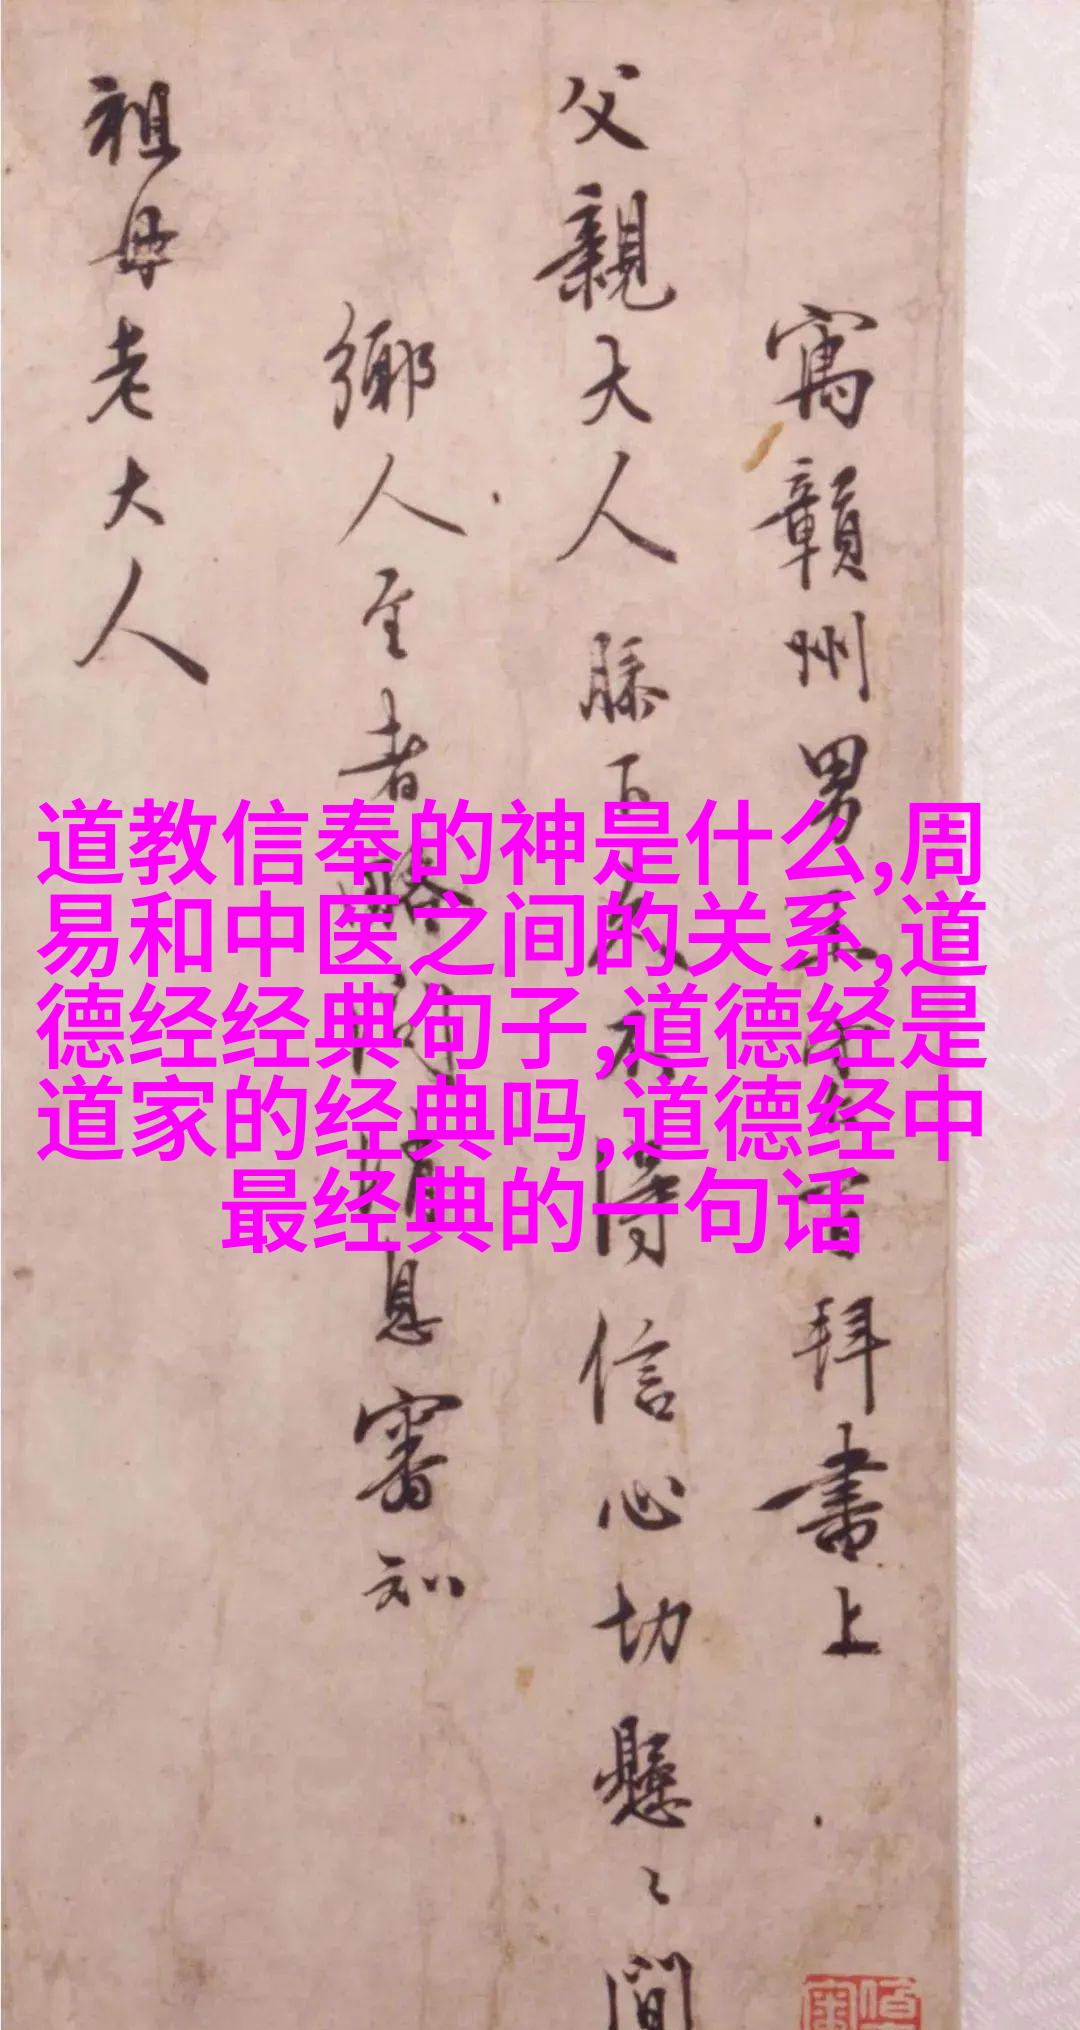 寓贛州男王守仁百拜書上
父親大人膝下久不得信心切懸〻間
鄉人至者略詢消息審知
祖母老大人
道教信奉的神是什么,周
易和中医之间的关系,道
德经经典句子,道德经是
道家的经典吗,道德经中
最经典的一句话